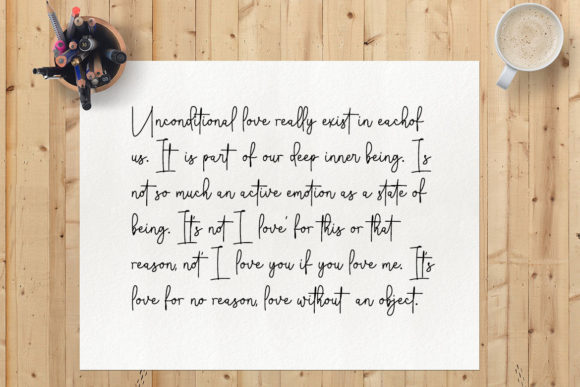 Unconditional love really exist in eachof
us. It is part of our deep inner being. Is
not so much an active emotion as a state of
being. It's not I love' for this or that
reason, not' I love you if you love me. It's
love for no reason, love without an object.